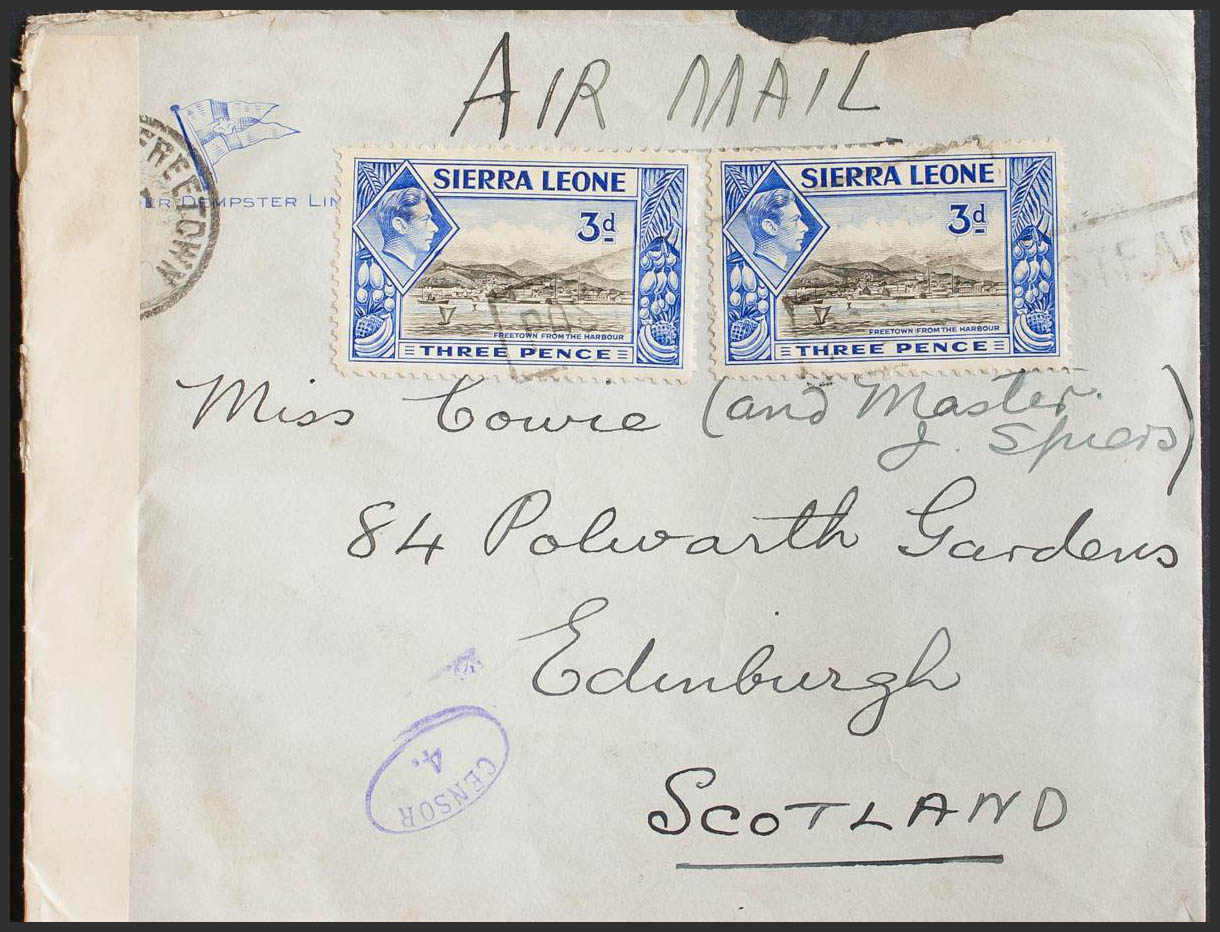 AIR MAIL
FREETOWN
DEMPSTER
SIERRA LEONE
3d
FREETOWN FROM THE HARBOUR
THREE PENCE
SIERRA LEONE
3d
FREETOWN FROM THE HARBOUR
THREE PENCE
Miss Cowie (and Master.
J. Spiers)
84 Polwarth Gardens
Edinburgh
SCOTLAND
CENSOR
4.